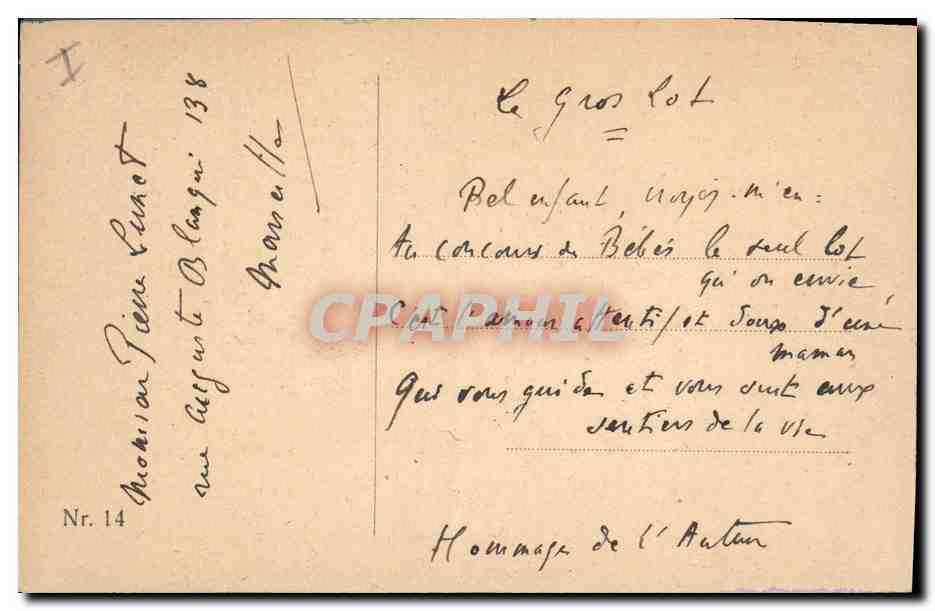 I
Le Gros Lot
Bel enfant, croyez-m'en :
Au concours de Bébés le seul lot
qu'on envie,
C'est l'amour attentif et doux d'une
maman
Qui vous guide et vous suit aux
sentiers de la vie
Hommages de l'Auteur
Monsieur Pierre Lunet
rue Auguste Blanqui 138
Marseille
Nr. 14
CPAPHIL